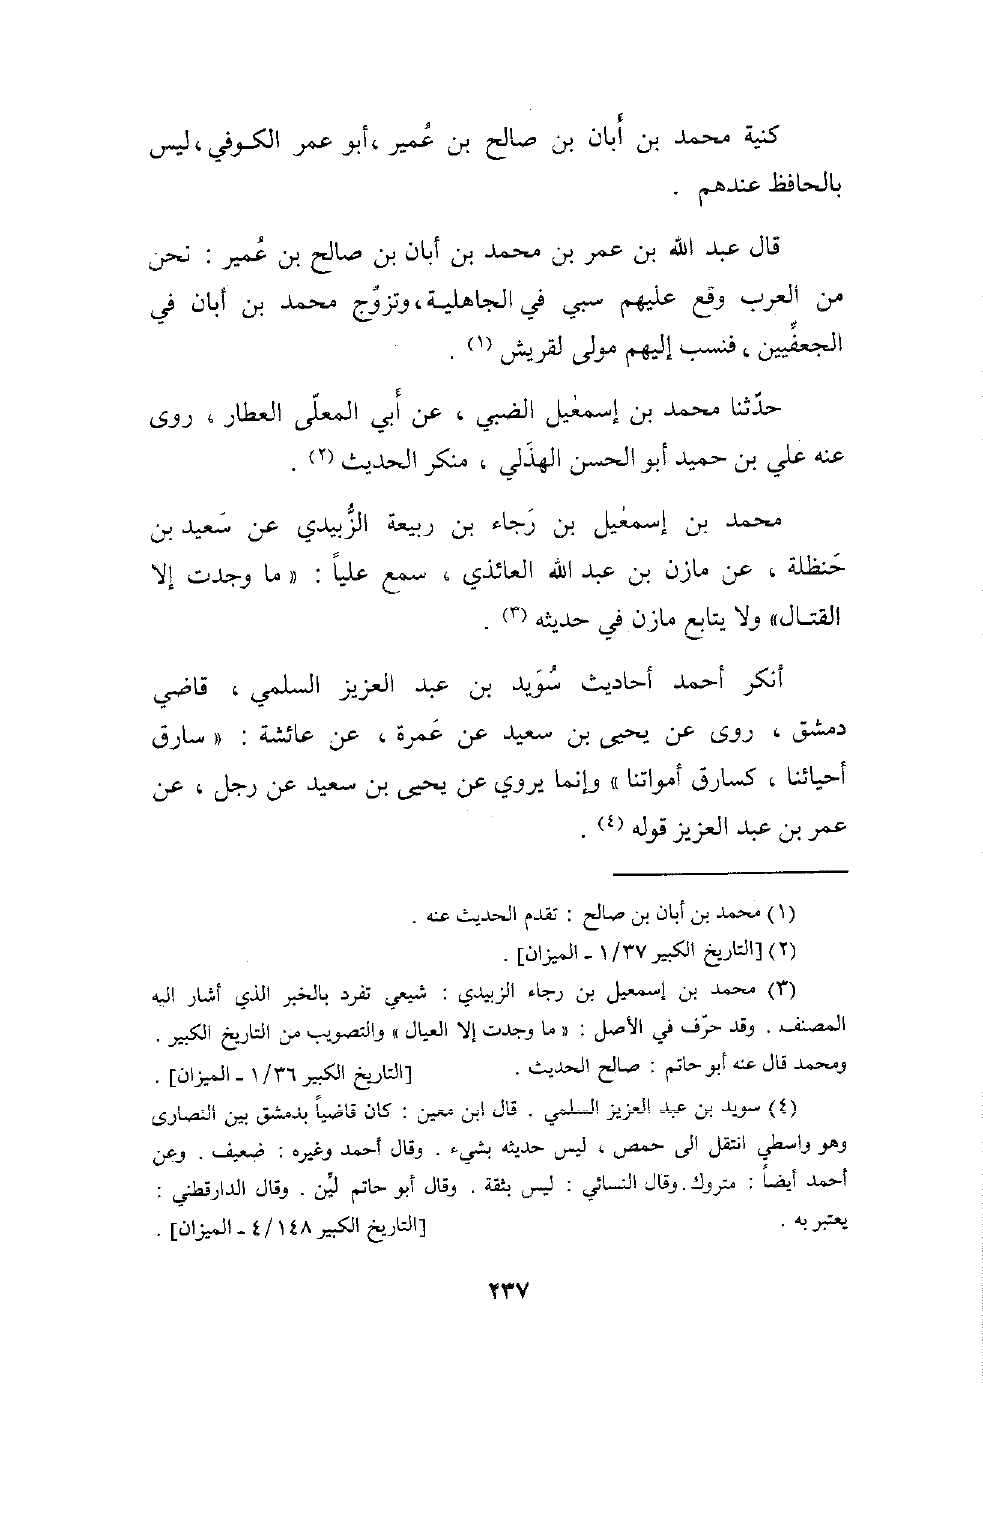 كنية محمد بن أَبان بن صالح بن عُمير ، أبو عمر الكوفي ، ليس
بالحافظ عندهم .
قال عبد الله بن عمر بن محمد بن أبان بن صالح بن عُمير : نحن
من العرب وقع عليهم سبي في الجاهلية ، وتزوّج محمد بن أبان في
الجعفيِّين ، فنسب إليهم مولى لقريش (١) .
حدّثنا محمد بن إسمعٰيل الضبي ، عن أَبي المعلّى العطار ، روى
عنه علي بن حميد أبو الحسن الهذَلي ، منكر الحديث (٢) .
محمد بن إسمعٰيل بن رَجاء بن ربيعة الزُّبيدي عن سَعيد بن
حَنظلة ، عن مازن بن عبد الله العائذي ، سمع علياً : « ما وجدت إلا
القتال» ولا يتابع مازن في حديثه (٣) .
أنكر أحمد أحاديث سُوَيد بن عبد العزيز السلمي ، قاضي
دمشق ، روى عن يحيى بن سعيد عن عَمرة ، عن عائشة : « سارق
أحيائنا ، كسارق أمواتنا » وإنما يروي عن يحيى بن سعيد عن رجل ، عن
عمر بن عبد العزيز قوله (٤) .
(١) محمد بن أبان بن صالح : تقدم الحديث عنه .
(٢) [التاريخ الكبير ١/٣٧ ـ الميزان] .
(٣) محمد بن إسمعيل بن رجاء الزبيدي : شيعي تفرد بالخبر الذي أشار اليه
المصنف . وقد حرّف في الأصل : « ما وجدت إلا العيال » والتصويب من التاريخ الكبير .
ومحمد قال عنه أبو حاتم : صالح الحديث . [التاريخ الكبير ١/٣٦ ـ الميزان] .
(٤) سويد بن عبد العزيز السلمي . قال ابن معين : كان قاضياً بدمشق بين النصارى
وهو واسطي انتقل الى حمص ، ليس حديثه بشيء . وقال أحمد وغيره : ضعيف . وعن
أحمد أيضاً : متروك . وقال النسائي : ليس بثقة . وقال أبو حاتم ليّن . وقال الدارقطني :
يعتبر به . [التاريخ الكبير ٤/١٤٨ ـ الميزان] .
٢٣٧